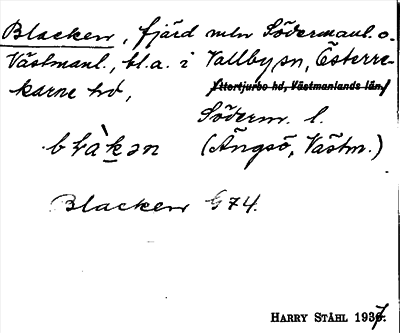 Blacken, fjärd mln Södermanl. o.
Västmanl., bl.a. i Vallby sn, Österre-
karne hd, Yttertjurbo hd, Västmanlands län,
Söderm. l.
blàkən (Ängsö, Västm.)
Blacken G 74.
HARRY STÅHL 1937.